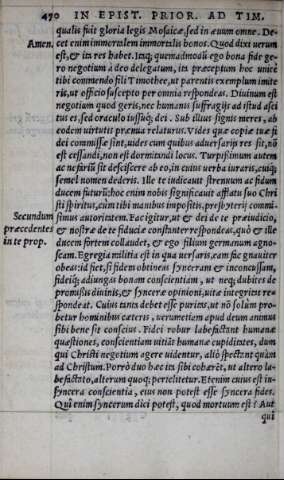 470 IN EPIST. PRIOR. AD TIM.
qualis fuit gloria legis Mosaicæ, sed in æuum omne. De-
Amen. cet enim immortalem immortalis honos. Quod dixi uerum
est, & ita res habet. Itaq; quemadmodū ego bona fide ge-
ro negotium à deo delegatum, ita præceptum hoc uniće
tibi commendo fili Timothee, ut parentis exemplum imite
ris, ut officio suscepto per omnia respondeas. Diuinum est
negotium quod geris, nec humanis suffragijs ad istud asci
tus es, sed oraculo iussuq; dei. Sub illius signis meres, ab
eodem uirtutis præmia relaturus. Vides quæ copiæ tuæ fi
dei commissæ sint, uides cum quibus aduersarijs res sit, nō
est cessandi, non est dormitandi locus. Turpissimum autem
ac nefariū sit desciscere ab eo, in cuius uerba iuraris, cuiq;
semel nomen dederis. Ille te indicauit strenuum ac fidum
ducem futurū: hoc enim nobis significauit afflatu suo Chri
sti spiritus, cùm tibi manibus impositis, presbyterij commi-
Secundum simus autoritatem. Fac igitur, ut & dei de te præiudicio,
præcedentes & nostræ de te fiduciæ constanter respondeas, quò & ille
in te prop. ducem fortem collaudet, & ego filium germanum agno-
scam. Egregia militia est in qua uersaris, eam sic gnauiter
obeas: id fiet, si fidem obtineas synceram & inconcussam,
fideiq; adiungas bonam conscientiam, ut neq; dubites de
promissis diuinis, & synceræ opinioni, uitæ integritas re-
spondeat. Cuius tanta debet esse puritas, ut nō solùm pro-
betur hominibus cæteris, uerumetiam apud deum animus
sibi bene sit conscius. Fidei robur labefactant humanæ
quæstiones, conscientiam uitiāt humanæ cupiditates, dum
qui Christi negotium agere uidentur, aliò spectant quàm
ad Christum. Porrò duo hæc ita sibi cohærēt, ut altero la-
befactato, alterum quoq; periclitetur. Etenim cuius est in-
syncera conscientia, eius non potest esse syncera fides.
Quî enim syncerum dici potest, quod mortuum est? Aut
qui